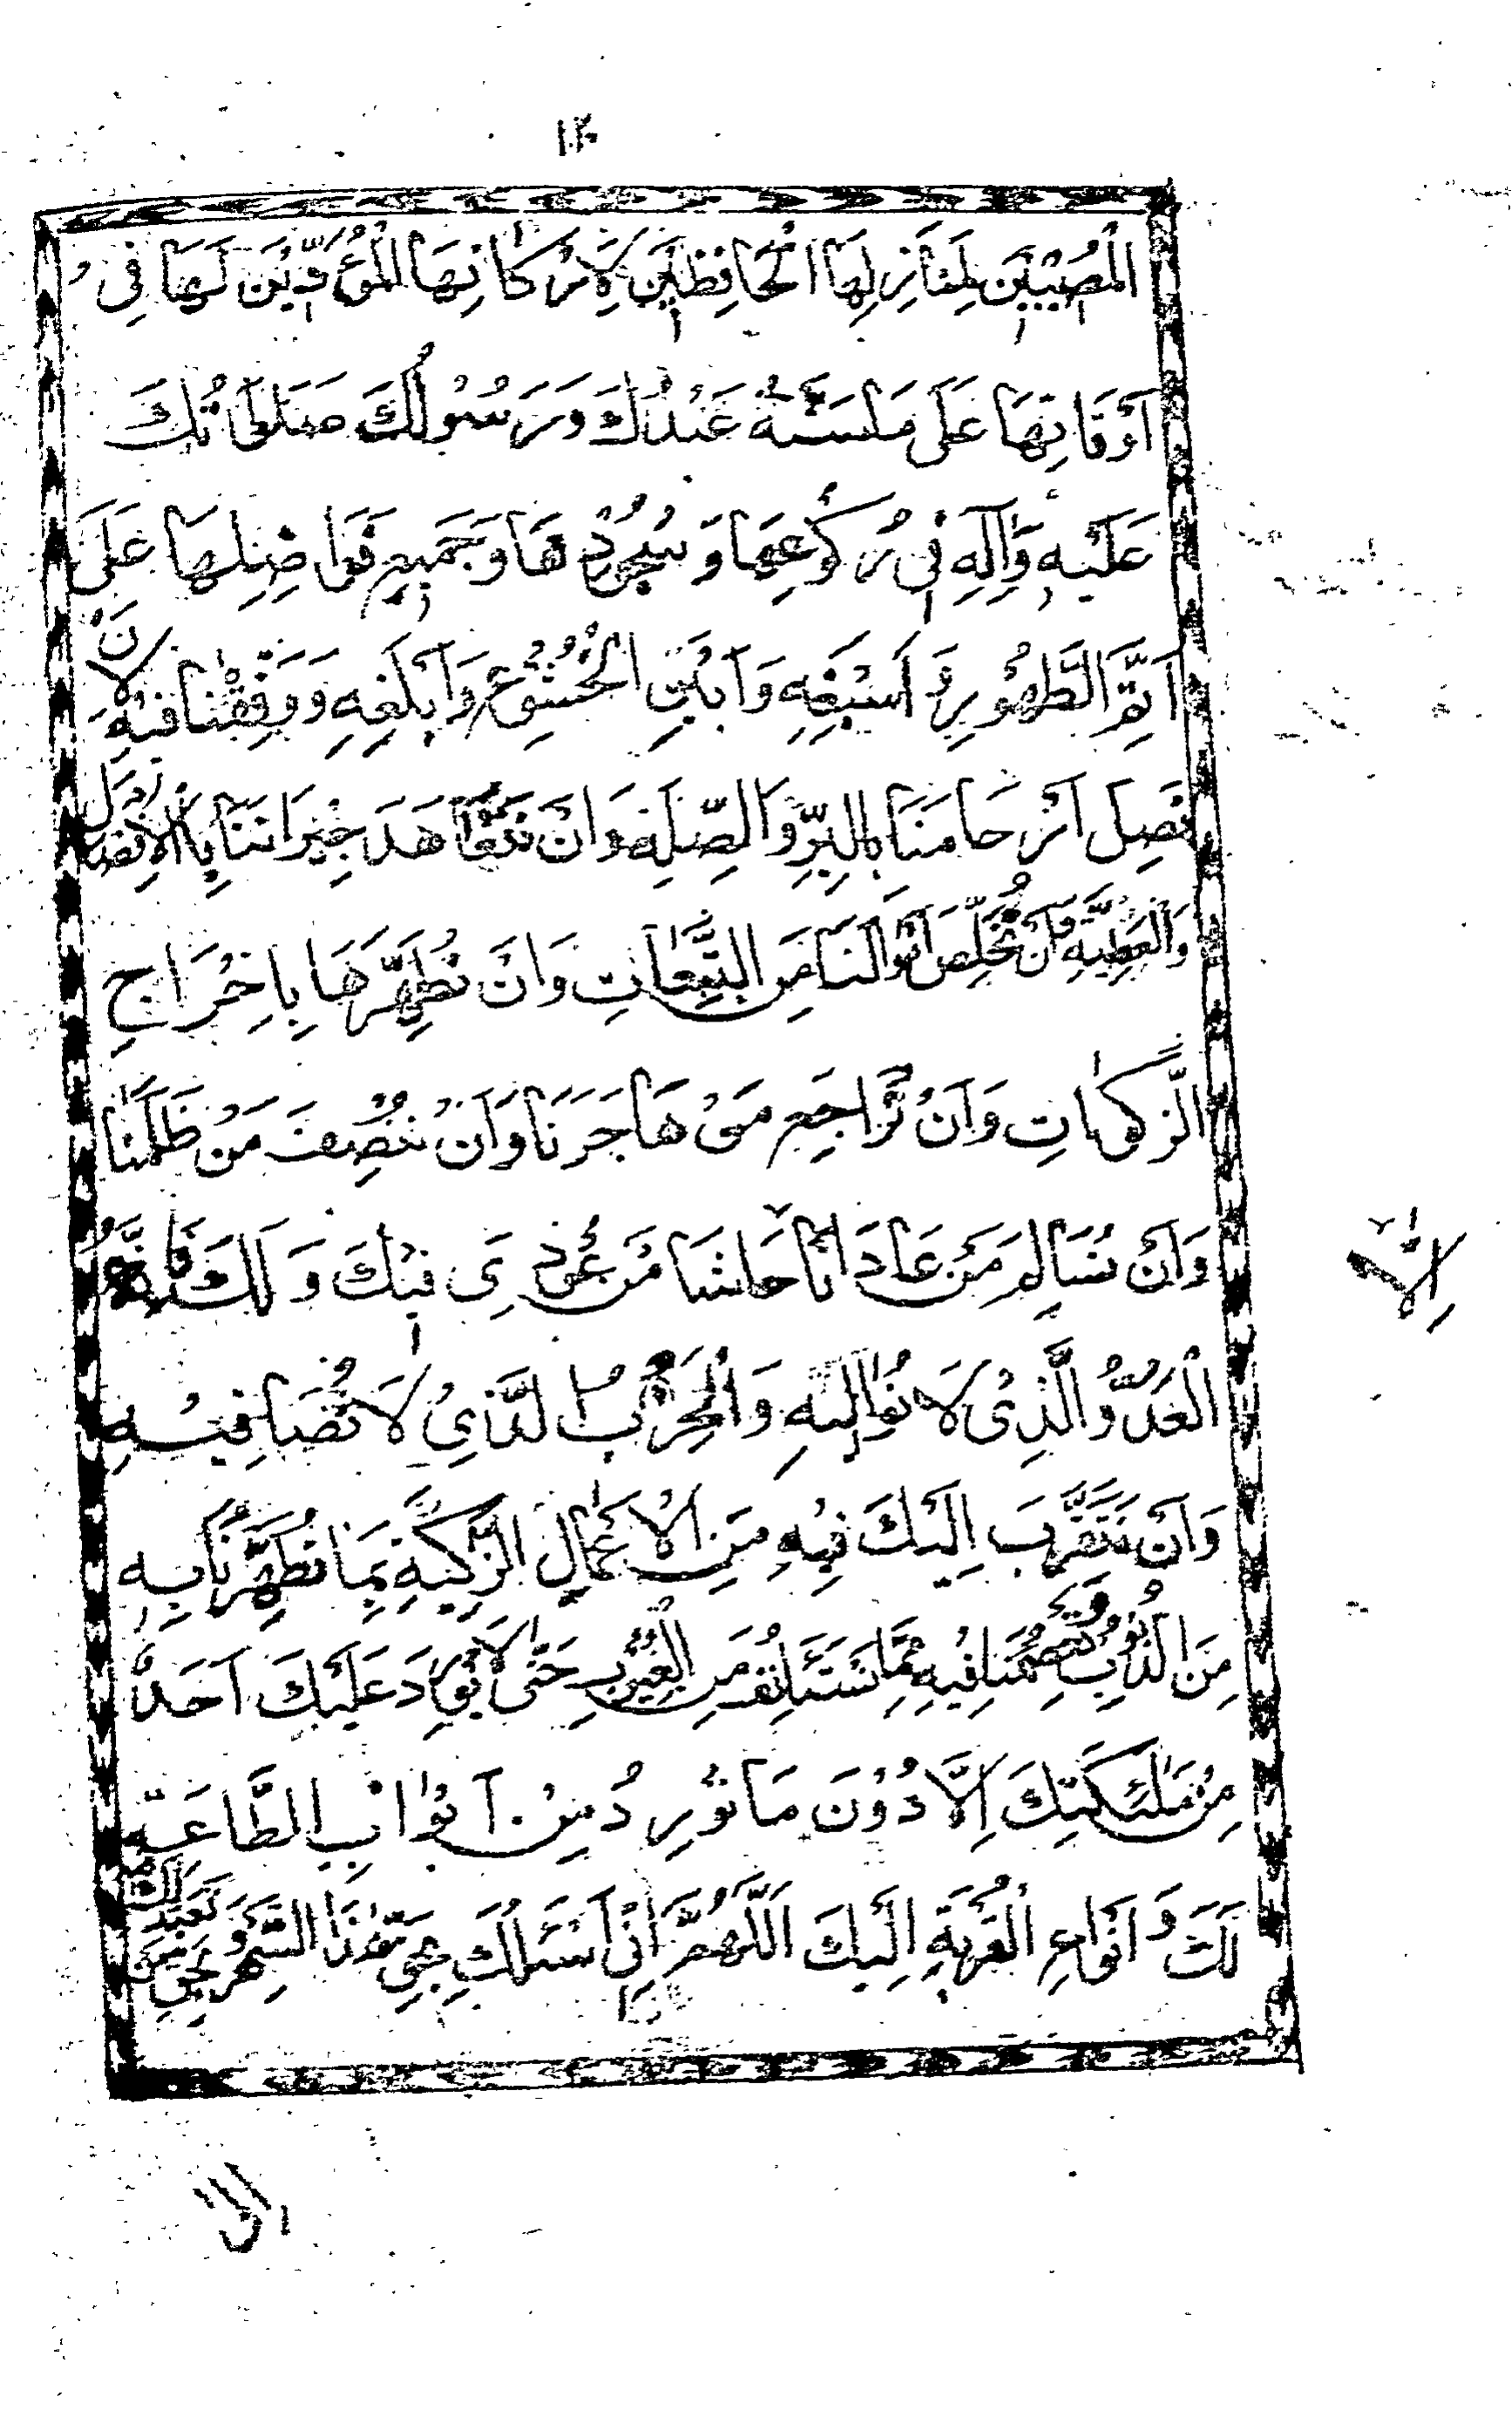 ١٠٢
الْمُصِيْبِيْنَ لِمَنَازِلِهَا الْحَافِظِيْنَ لِاَرْكَانِهَا الْمُؤَدِّيْنَ لَهَا فِى
اَوْقَاتِهَا عَلٰى مَا سَنَّهُ عَبْدُكَ وَرَسُوْلُكَ صَلَوَاتُكَ
عَلَيْهِ وَاٰلِهِ فِى رُكُوْعِهَا وَسُجُوْدِهَا وَجَمِيْعِ فَوَاضِلِهَا عَلٰى
اَتَمِّ الطَّهُوْرِ وَاَسْبَغِهِ وَاَبْيَنِ الْخُشُوْعِ وَاَبْلَغِهِ وَوَفِّقْنَا فِيْهِ لِاَنْ
نَصِلَ اَرْحَامَنَا بِالْبِرِّ وَالصِّلَةِ وَاَنْ نَتَعَاهَدَ جِيْرَانَنَا بِالْاِفْضَالِ
وَالْعَطِيَّةِ وَاَنْ نُخَلِّصَ اَمْوَالَنَا مِنَ التَّبِعَاتِ وَاَنْ نُطَهِّرَهَا بِاِخْرَاجِ
الزَّكَوَاتِ وَاَنْ نُرَاجِعَ مَنْ هَاجَرَنَا وَاَنْ نُنْصِفَ مَنْ ظَلَمَنَا
وَاَنْ نُسَالِمَ مَنْ عَادَانَا حَاشَا مَنْ عُوْدِىَ فِيْكَ وَلَكَ فَاِنَّهُ
الْعَدُوُّ الَّذِىْ لَا نُوَالِيْهِ وَالْحِزْبُ الَّذِىْ لَا نُصَافِيْهِ
وَاَنْ نَتَقَرَّبَ اِلَيْكَ فِيْهِ مِنَ الْاَعْمَالِ الزَّاكِيَةِ بِمَا تُطَهِّرُنَا بِهِ
مِنَ الذُّنُوْبِ وَتَعْصِمُنَا فِيْهِ مِمَّا نَسْتَاْنِفُ مِنَ الْعُيُوْبِ حَتّٰى لَا يُوْرِدَ عَلَيْكَ اَحَدٌ
مِنْ مَلٰئِكَتِكَ اِلَّا دُوْنَ مَا نُوْرِدُ مِنْ اَبْوَابِ الطَّاعَةِ
لَكَ وَاَنْوَاعِ الْقُرْبَةِ اِلَيْكَ اَللّٰهُمَّ اِنِّىْ اَسْئَلُكَ بِحَقِّ هٰذَا الشَّهْرِ وَبِحَقِّ مَنْ تَعَبَّدَ لَكَ